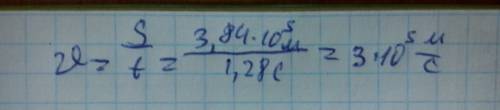 υ = S/t = 3,84·10⁵м/1,28с = 3·10⁵ м/с